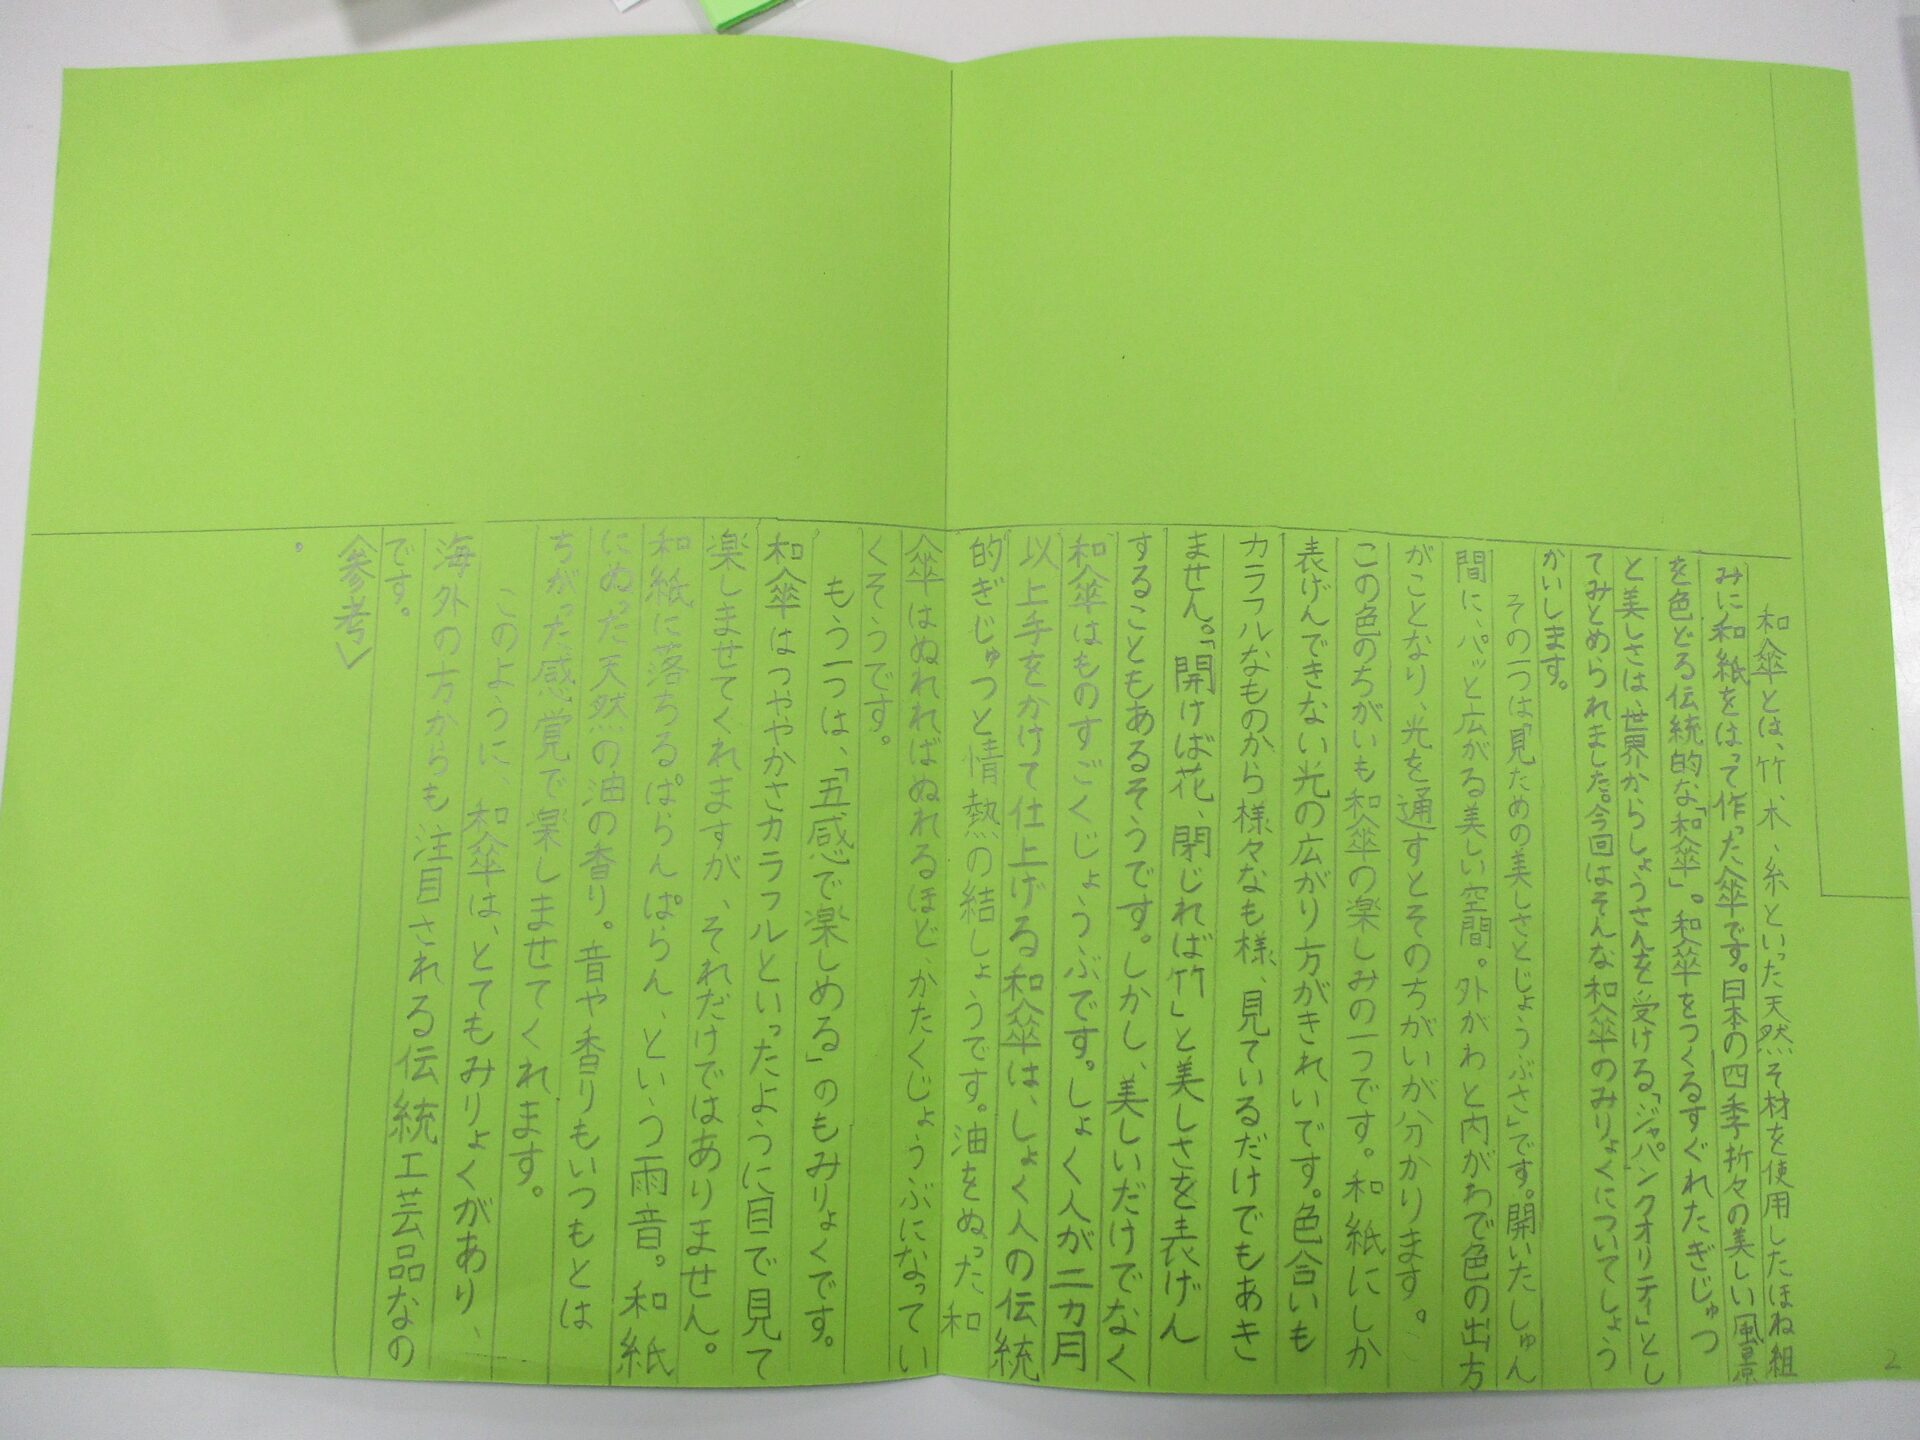 和傘とは、竹、木、糸といった天然そ材を使用したほね組
みに和紙をはって作った傘です。日本の四季折々の美しい風景
を色どる伝統的な「和傘」。和傘をつくるすぐれたぎじゅつ
と美しさは、世界からしょうさんを受ける、「ジャパンクオリティ」とし
てみとめられました。今回はそんな和傘のみりょくについてしょう
かいします。
その一つは「見ための美しさとじょうぶさ」です。開いたしゅん
間に、パッと広がる美しい空間。外がわと内がわで色の出方
がことなり、光を通すとそのちがいが分かります。
この色のちがいも和傘の楽しみの一つです。和紙にしか
表げんできない光の広がり方がきれいです。色合いも
カラフルなものから様々なも様、見ているだけでもあき
ません。「開けば花、閉じれば竹」と美しさを表げん
することもあるそうです。しかし、美しいだけでなく
和傘はものすごくじょうぶです。しょく人が二カ月
以上手をかけて仕上げる和傘は、しょく人の伝統
的ぎじゅつと情熱の結しょうです。油をぬった和
傘はぬれればぬれるほど、かたくじょうぶになってい
くそうです。
もう一つは、「五感で楽しめる」のもみりょくです。
和傘はつややかさカラフルといったように目で見て
楽しませてくれますが、それだけではありません。
和紙に落ちるぱらんぱらん、という雨音。和紙
にぬった天然の油の香り。音や香りもいつもとは
ちがった感覚で楽しませてくれます。
このように、和傘は、とてもみりょくがあり、
海外の方からも注目される伝統工芸品なの
です。
〈参考〉
・
2